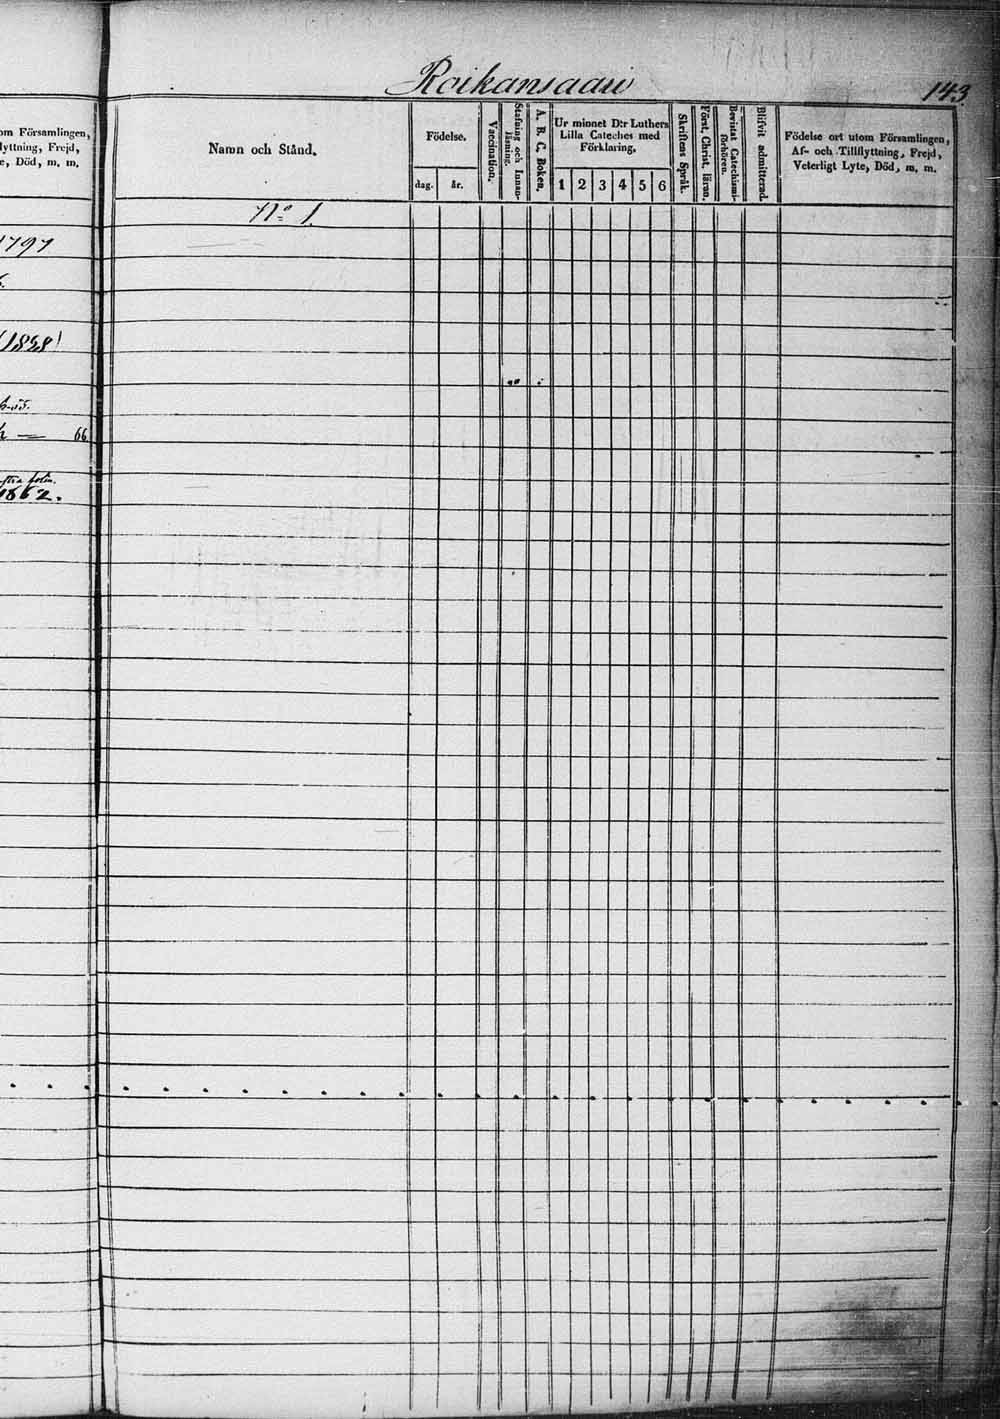 Roikansaari
143
om Församlingen,
lyttning, Frejd,
e, Död, m. m.
1797
1828
66
1862.
Namn och Stånd.
Födelse.
dag. år.
Vaccination.
Stafning och Innan-
läsning.
A. B. C. Boken.
Ur minnet D:r Luthers
Lilla Cateches med
Förklaring.
1 2 3 4 5 6
Skriftens Språk.
Först. Christ. läran.
Bevistat Catechismi-
förhören.
Blifvit admitterad.
Födelse ort utom Församlingen,
Af- och Tillflyttning, Frejd,
Veterligt Lyte, Död, m. m.
No 1.